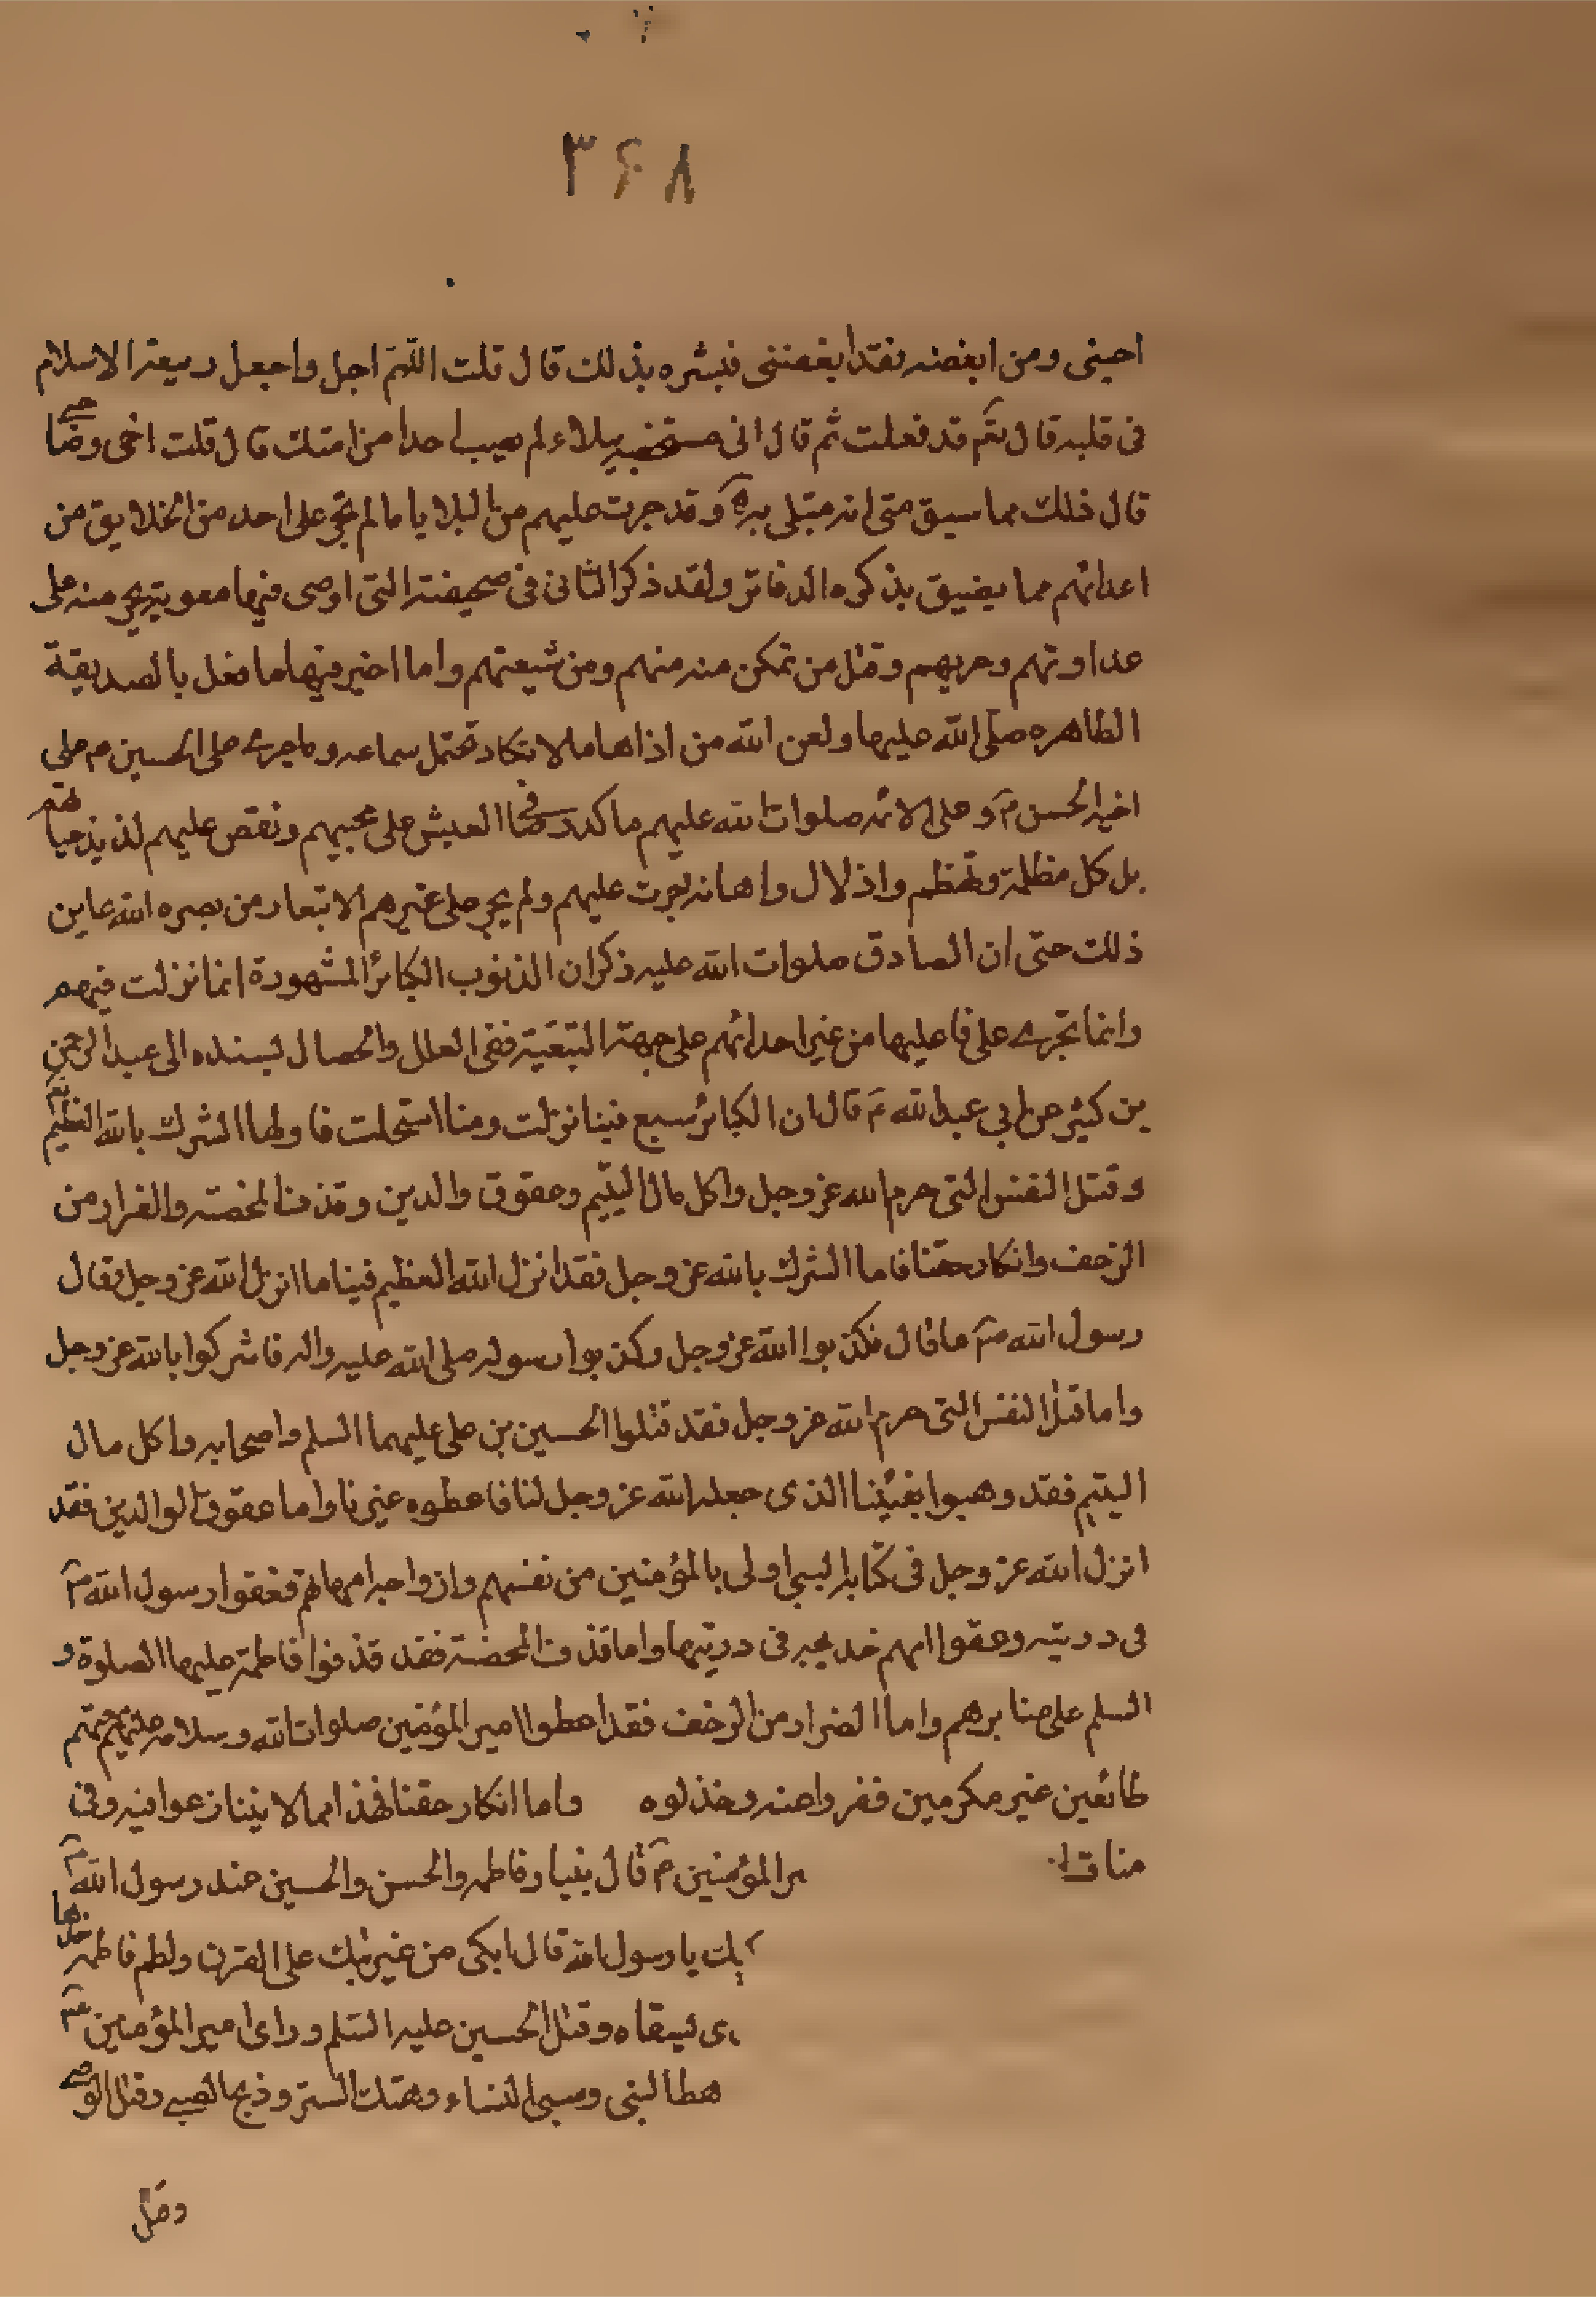 ٣۶٨
احبنى ومن ابغضه فقد ابغضنى فبشره بذلك قال قلت اللهم اجل واجعل ربيعة الاسلام
فى قلبه قال نعم قد فعلت ثم قال انى مستخصه ببلاء لم يصب احدا من امتك قال قلت اخى وصاحبى
قال ذلك مما سبق منى انه مبتلى به وقد جرت عليهم من البلايا ما لم تجر على احد من الخلايق من
اعدائهم مما يضيق بذكره الدفاتر ولقد ذكر الثانى فى صحيفته التى اوصى فيها معوية منه على
عداوتهم وحربهم وقتل من تمكن منه منهم ومن شيعتهم واما اخبر فيها ما فعل بالصديقة
الطاهره صلى الله عليها ولعن الله من اذاها ما لا تكاد تحتمل سماعه وما جرى على الحسين م على
اخيه الحسن م وعلى الائمه صلوات الله عليهم ما كدر العيش على محبيهم ونغص عليهم لذيذ حياتهم
بل كل مظلمة وتهظم واذلال واهانه جرت عليهم ولم يجر على غيرهم الا تبعا ومن بصره الله عاين
ذلك حتى ان الصادق صلوات الله عليه ذكر ان الذنوب الكبائر المشهودة انما نزلت فيهم
وانما تجرى على فاعليها من غير اعدائهم على جهة التبعية ففى العلل والخصال بسنده الى عبد الرحمن
بن كثير عن ابى عبد الله م قال ان الكبائر سبع فينا نزلت ومنا استحلت فاولها الشرك بالله العظيم
وقتل النفس التى حرم الله عز وجل واكل مال اليتيم وعقوق والدين وقذف المحصنه والفرار من
الزحف وانكار حقنا فاما الشرك بالله عز وجل فقد انزل الله العظيم فينا ما انزل الله عز وجل وقال
رسول الله ص ما قال فكذبوا الله عز وجل وكذبوا رسوله صلى الله عليه واله فاشركوا بالله عز وجل
واما قتل النفس التى حرم الله عز وجل فقد قتلوا الحسين بن على عليهما السلم واصحابه واكل مال
اليتيم فقد وهبوا بفيئنا الذى جعله الله عز وجل لنا فاعطوه غيرنا واما عقوق الوالدين فقد
انزل الله عز وجل فى كتابه النبى اولى بالمؤمنين من نفسهم وازواجه امهاتهم فعقوا رسول الله ص
فى دريته وعقوا امهم خديجه فى دريتها واما قذف المحصنة فقد قذفوا فاطمة عليها الصلوة و
السلم على منابرهم واما الفرار من الزحف فقد اعطوا امير المؤمنين صلوات الله وسلامه عليه بيعتهم
طائعين غير مكرهين ففروا عنه وخذلوه واما انكار حقنا فهذا مما لا يتنازعوا فيه وفى
مناقب ير المؤمنين م قال بينا وفاطمه والحسن والحسين عند رسول الله ص
يك يا رسول الله قال ابكى من ضربتك على القرن ولطم فاطمه خدها
ى يسقاه وقتل الحسين عليه السلم وراى امير المؤمنين ع
هطا لبنى وسبى النساء وهتك الستر وذبح الصبى وقتل الوصى
وقتل